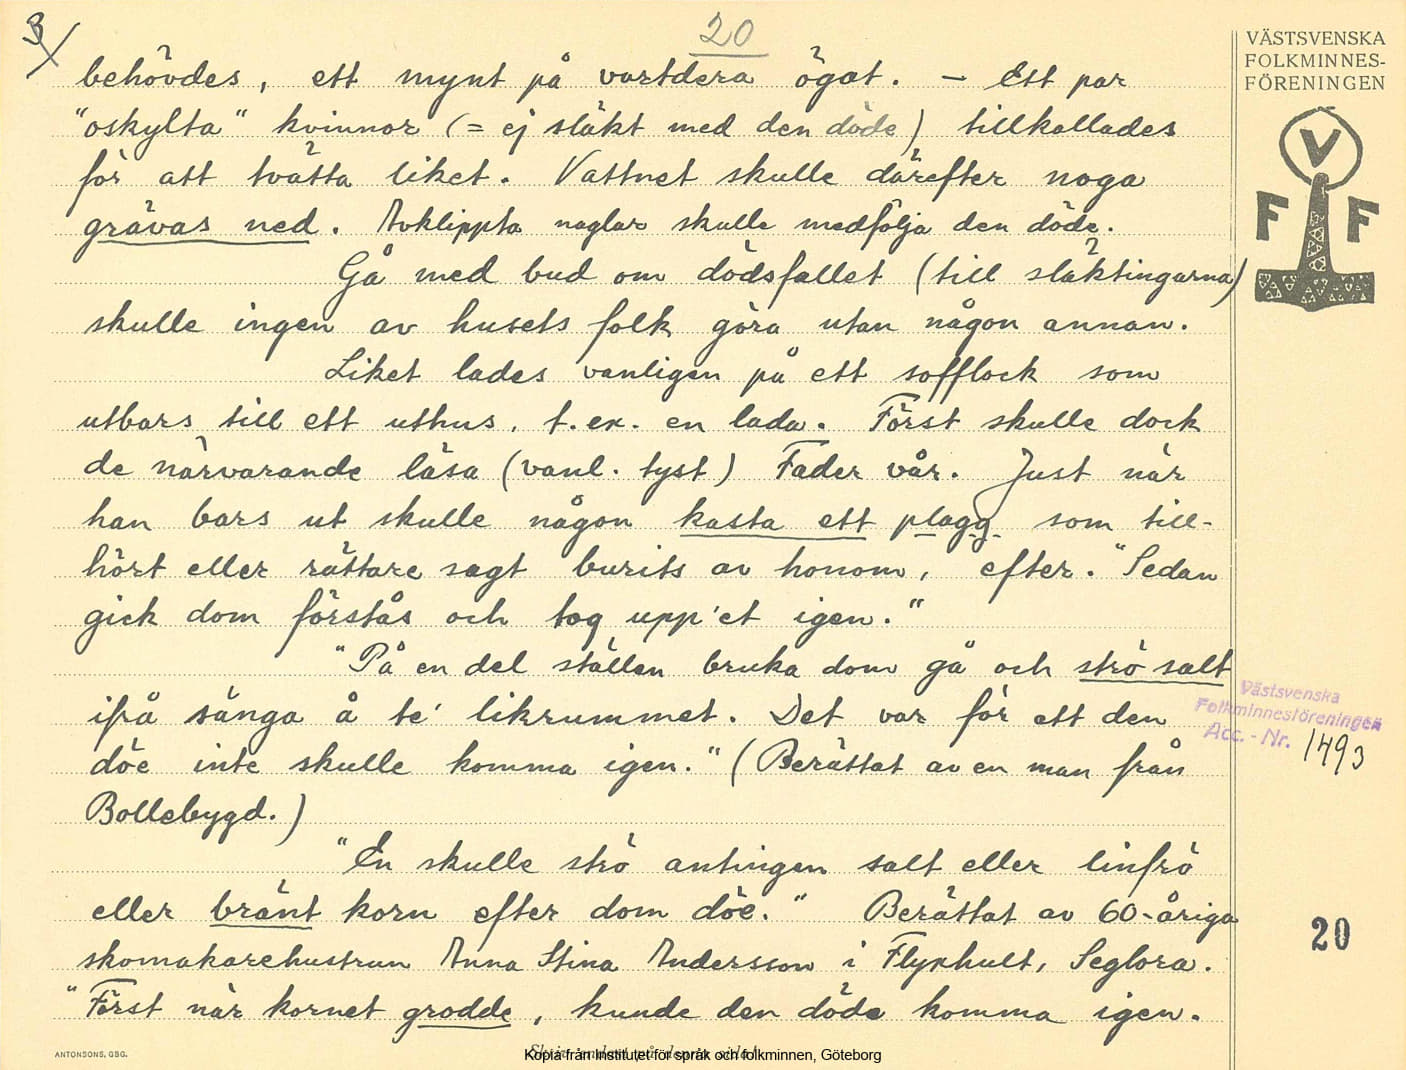 3
20
behövdes, ett mynt på vartdera ögat. – Ett par
"oskylta" kvinnor (= ej släkt med den döde) tillkallades
för att tvätta liket. Vattnet skulle därefter noga
grävas ned. Avklippta naglar skulle medfölja den döde.
Gå med bud om dödsfallet (till släktingarna)
skulle ingen av husets folk göra utan någon annan.
Liket lades vanligen på ett sofflock som
utbars till ett uthus, t.ex. en lada. Först skulle dock
de närvarande läsa (vanl. tyst) Fader vår. Just när
han bars ut skulle någon kasta ett plagg som till-
hört eller rättare sagt burits av honom, efter. "Sedan
gick dom förstås och tog upp'et igen."
"På en del ställen bruka dom gå och strö salt
ifrå sänga å te' likrummet. Det var för att den
döe inte skulle komma igen." (Berättat av en man från
Bollebygd.)
"En skulle strö antingen salt eller linfrö
eller bränt korn efter dom döe." Berättat av 60-åriga
skomakarehustrun Anna Stina Andersson i Flyhult, Seglora.
"Först när kornet grodde, kunde den döde komma igen.
VÄSTSVENSKA
FOLKMINNES-
FÖRENINGEN
V
F F
Västsvenska
Folkminnesföreningen
Acc.-Nr. 1493
20
ANTONSONS, GBG.
Kopia från Institutet för språk och folkminnen, Göteborg